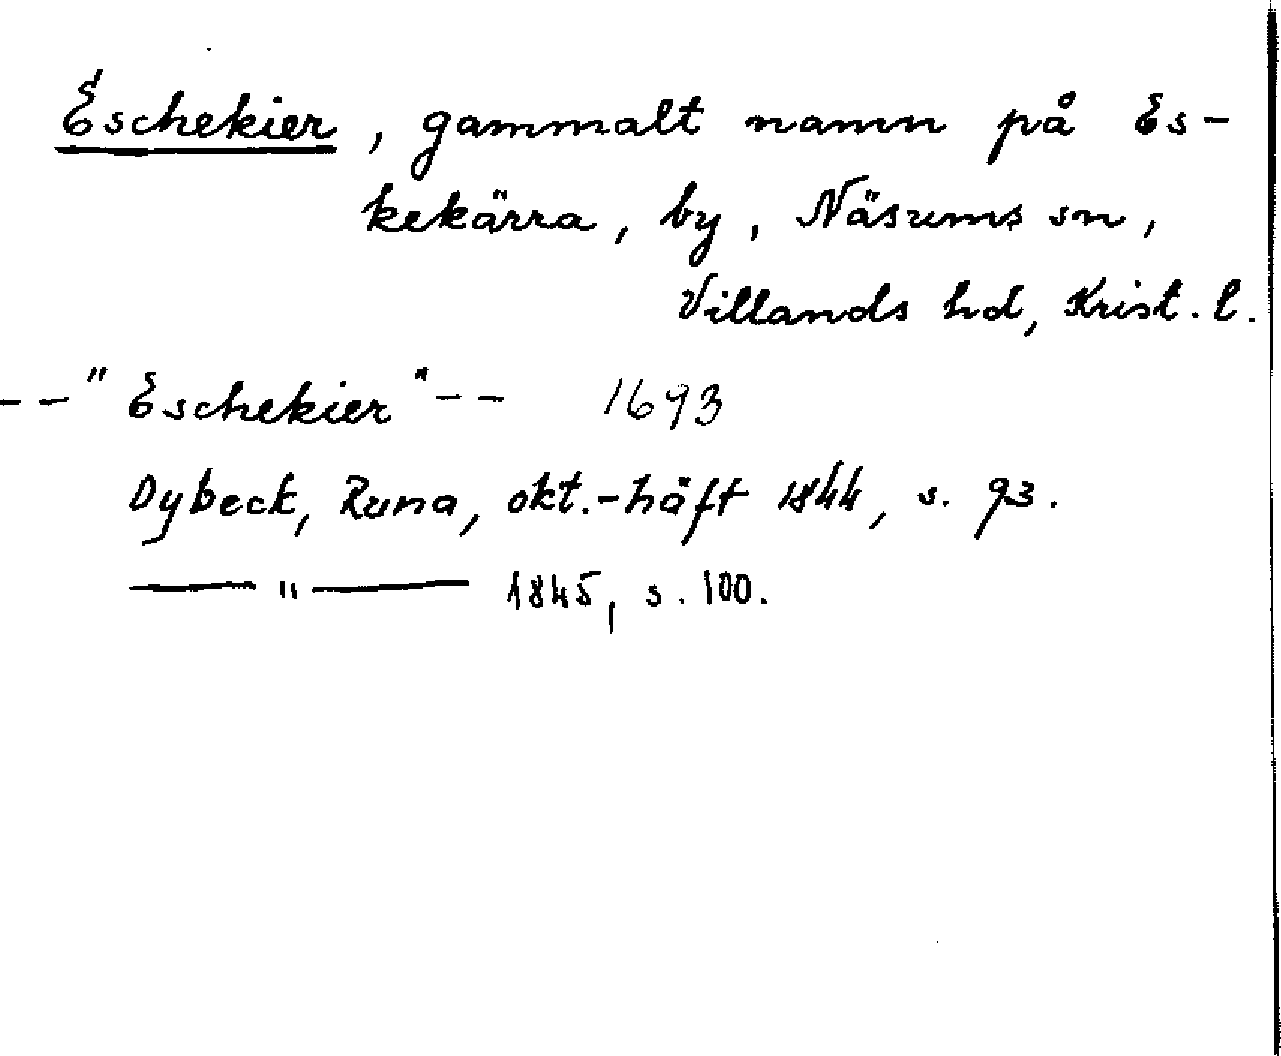 Eschekier, gammalt namn på Es-
kekärra, by, Näsums sn,
Villands hd, Krist. l.
--"Eschekier"-- 1693
Dybeck, Runa, okt.-häft 1844, s. 93.
—— " —— 1845, s. 100.